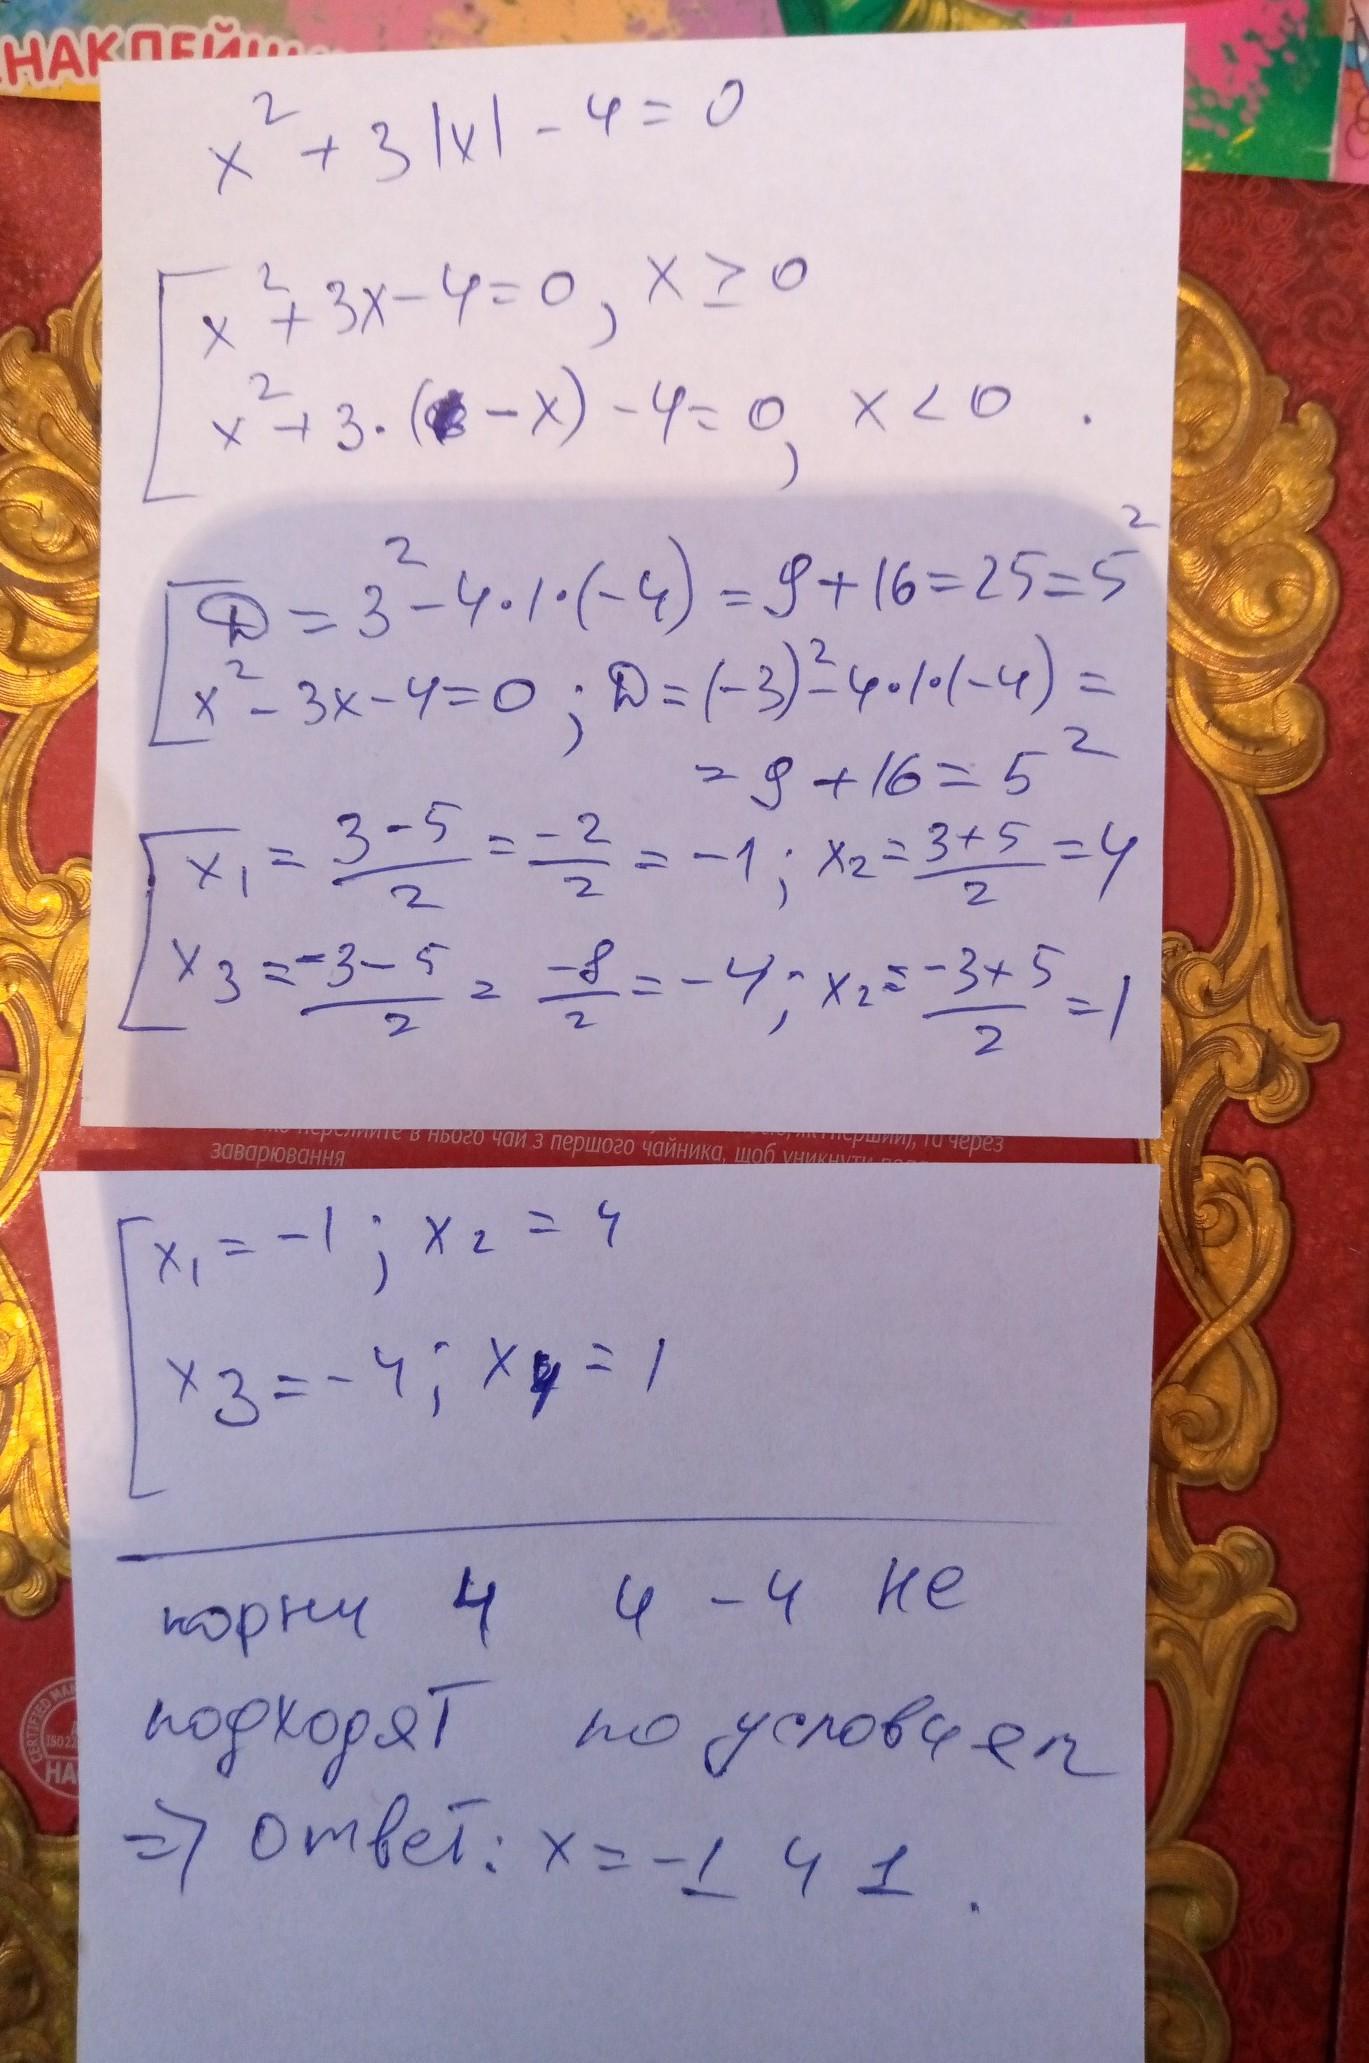 НАКЛЕЙ
x² + 3|x| - 4 = 0
x² + 3x - 4 = 0, x ≥ 0
x² + 3·( - x) - 4 = 0, x < 0 .
D = 3² - 4·1·(-4) = 9 + 16 = 25 = 5²
x² - 3x - 4 = 0 ; D = (-3)² - 4·1·(-4) =
= 9 + 16 = 5²
x₁ = (3 - 5)/2 = -2/2 = -1 ; x₂ = (3 + 5)/2 = 4
x₃ = (-3 - 5)/2 = -8/2 = -4 ; x₂ = (-3 + 5)/2 = 1
перелийте в нього чай з першого чайника, щоб уникнути
та через
заварювання
x₁ = -1 ; x₂ = 4
x₃ = -4 ; x₄ = 1
корни 4 и -4 не
подходят по условием
CERTIFIED
ISO 22
НА
=> ответ: x = -1 и 1 .